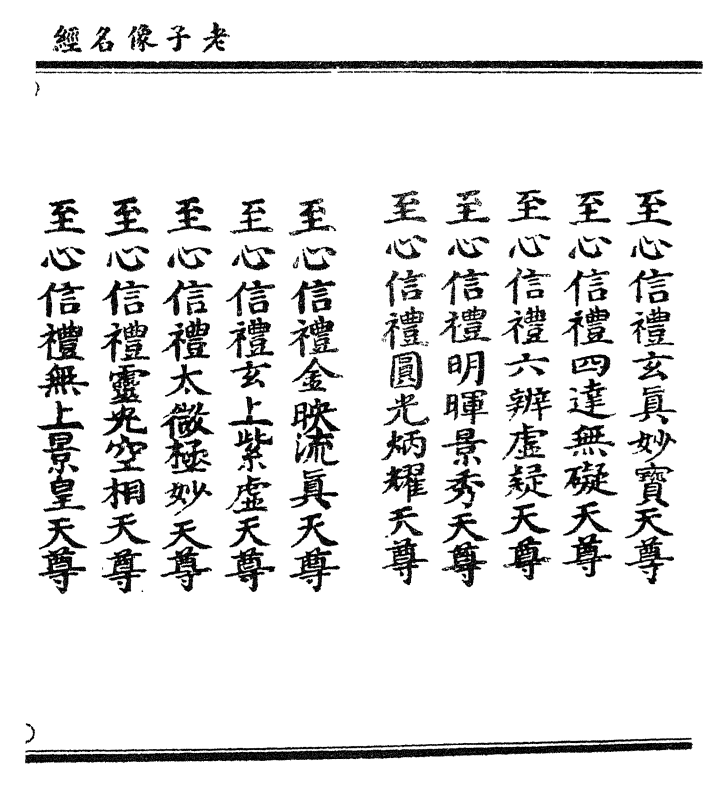 老子像名經
至心信禮玄眞妙寶天尊
至心信禮四達無礙天尊
至心信禮六辨虛疑天尊
至心信禮明暉景秀天尊
至心信禮圓光炳耀天尊
至心信禮金映流眞天尊
至心信禮玄上紫虛天尊
至心信禮太微極妙天尊
至心信禮靈光空相天尊
至心信禮無上景皇天尊